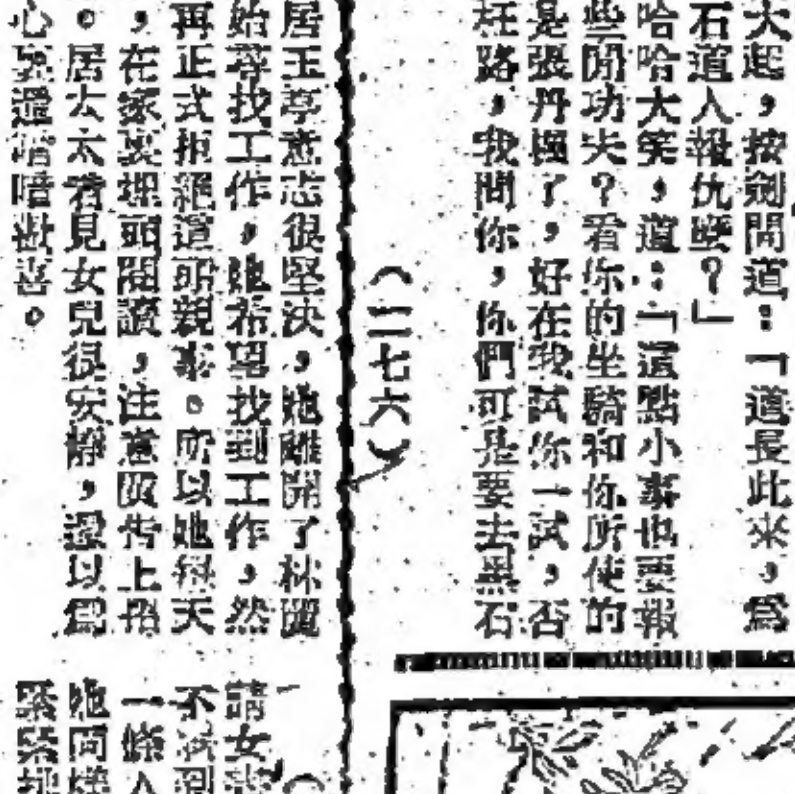 大起，按劍問道：「道長此來，爲
石道人報仇麼？」
哈哈大笑，道：「這點小事也要報
些閒功夫？看你的坐騎和你所使的
是張丹楓了，好在我試你一試，否
枉路，我問你，你們可是要去黑石
（二七六）
居玉亭意志很堅決，她離開了林園
始尋找工作，她希望找到工作，然
再正式拒絕這所親事。所以她天
，在家裏埋頭閱讀，注意報上
。居太太看見女兒很安靜，還以爲
心裏還暗暗歡喜。
請女
不到
一條人
她同樣
緊緊